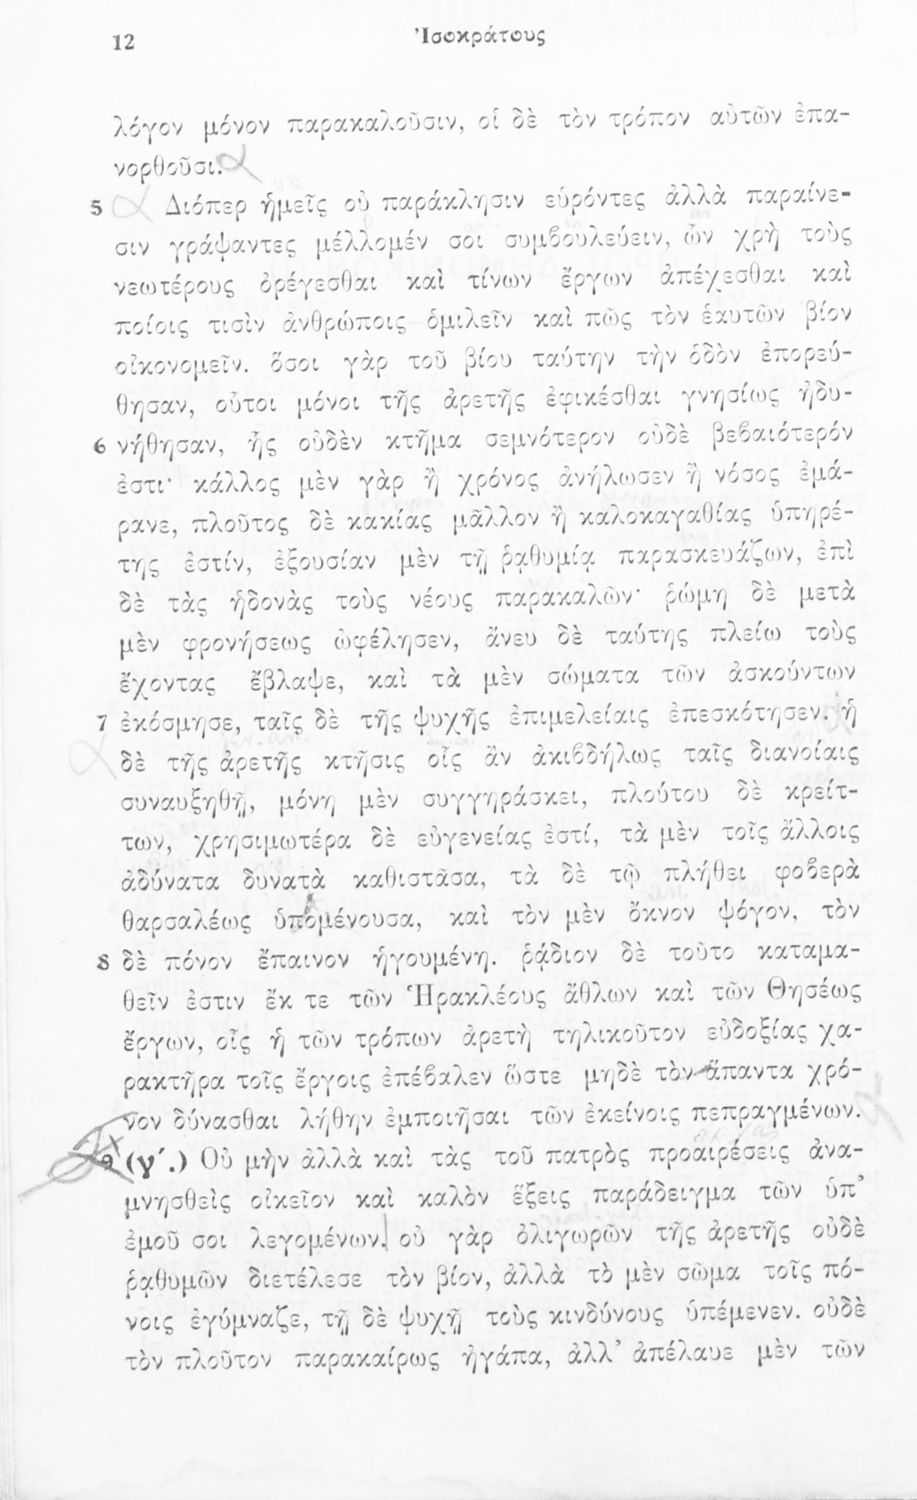 12
Ἰσοκράτους
λόγον μόνον παρακαλοῦσιν, οἱ δὲ τὸν τρόπον αὐτῶν ἐπα-
νορθοῦσι.
5 Διόπερ ἡμεῖς οὐ παράκλησιν εὑρόντες ἀλλὰ παραίνε-
σιν γράψαντες μέλλομέν σοι συμβουλεύειν, ὧν χρὴ τοὺς
νεωτέρους ὀρέγεσθαι καὶ τίνων ἔργων ἀπέχεσθαι καὶ
ποίοις τισὶν ἀνθρώποις ὁμιλεῖν καὶ πῶς τὸν ἑαυτῶν βίον
οἰκονομεῖν. ὅσοι γὰρ τοῦ βίου ταύτην τὴν ὁδὸν ἐπορεύ-
θησαν, οὗτοι μόνοι τῆς ἀρετῆς ἐφικέσθαι γνησίως ἠδυ-
6 νήθησαν, ἧς οὐδὲν κτῆμα σεμνότερον οὐδὲ βεβαιότερόν
ἐστι· κάλλος μὲν γὰρ ἢ χρόνος ἀνήλωσεν ἢ νόσος ἐμά-
ρανε, πλοῦτος δὲ κακίας μᾶλλον ἢ καλοκαγαθίας ὑπηρέ-
της ἐστίν, ἐξουσίαν μὲν τῇ ῥᾳθυμίᾳ παρασκευάζων, ἐπὶ
δὲ τὰς ἡδονὰς τοὺς νέους παρακαλῶν· ῥώμη δὲ μετὰ
μὲν φρονήσεως ὠφέλησεν, ἄνευ δὲ ταύτης πλείω τοὺς
ἔχοντας ἔβλαψε, καὶ τὰ μὲν σώματα τῶν ἀσκούντων
7 ἐκόσμησε, ταῖς δὲ τῆς ψυχῆς ἐπιμελείαις ἐπεσκότησεν. ἡ
δὲ τῆς ἀρετῆς κτῆσις οἷς ἂν ἀκιβδήλως ταῖς διανοίαις
συναυξηθῇ, μόνη μὲν συγγηράσκει, πλούτου δὲ κρείτ-
των, χρησιμωτέρα δὲ εὐγενείας ἐστί, τὰ μὲν τοῖς ἄλλοις
ἀδύνατα δυνατὰ καθιστᾶσα, τὰ δὲ τῷ πλήθει φοβερὰ
θαρσαλέως ὑπομένουσα, καὶ τὸν μὲν ὄκνον ψόγον, τὸν
8 δὲ πόνον ἔπαινον ἡγουμένη. ῥᾴδιον δὲ τοῦτο καταμα-
θεῖν ἐστιν ἔκ τε τῶν Ἡρακλέους ἄθλων καὶ τῶν Θησέως
ἔργων, οἷς ἡ τῶν τρόπων ἀρετὴ τηλικοῦτον εὐδοξίας χα-
ρακτῆρα τοῖς ἔργοις ἐπέβαλεν ὥστε μηδὲ τὸν ἅπαντα χρό-
νον δύνασθαι λήθην ἐμποιῆσαι τῶν ἐκείνοις πεπραγμένων.
9 (γ΄.) Οὐ μὴν ἀλλὰ καὶ τὰς τοῦ πατρὸς προαιρέσεις ἀνα-
μνησθεὶς οἰκεῖον καὶ καλὸν ἕξεις παράδειγμα τῶν ὑπ’
ἐμοῦ σοι λεγομένων. οὐ γὰρ ὀλιγωρῶν τῆς ἀρετῆς οὐδὲ
ῥᾳθυμῶν διετέλεσε τὸν βίον, ἀλλὰ τὸ μὲν σῶμα τοῖς πό-
νοις ἐγύμναζε, τῇ δὲ ψυχῇ τοὺς κινδύνους ὑπέμενεν. οὐδὲ
τὸν πλοῦτον παρακαίρως ἠγάπα, ἀλλ’ ἀπέλαυε μὲν τῶν